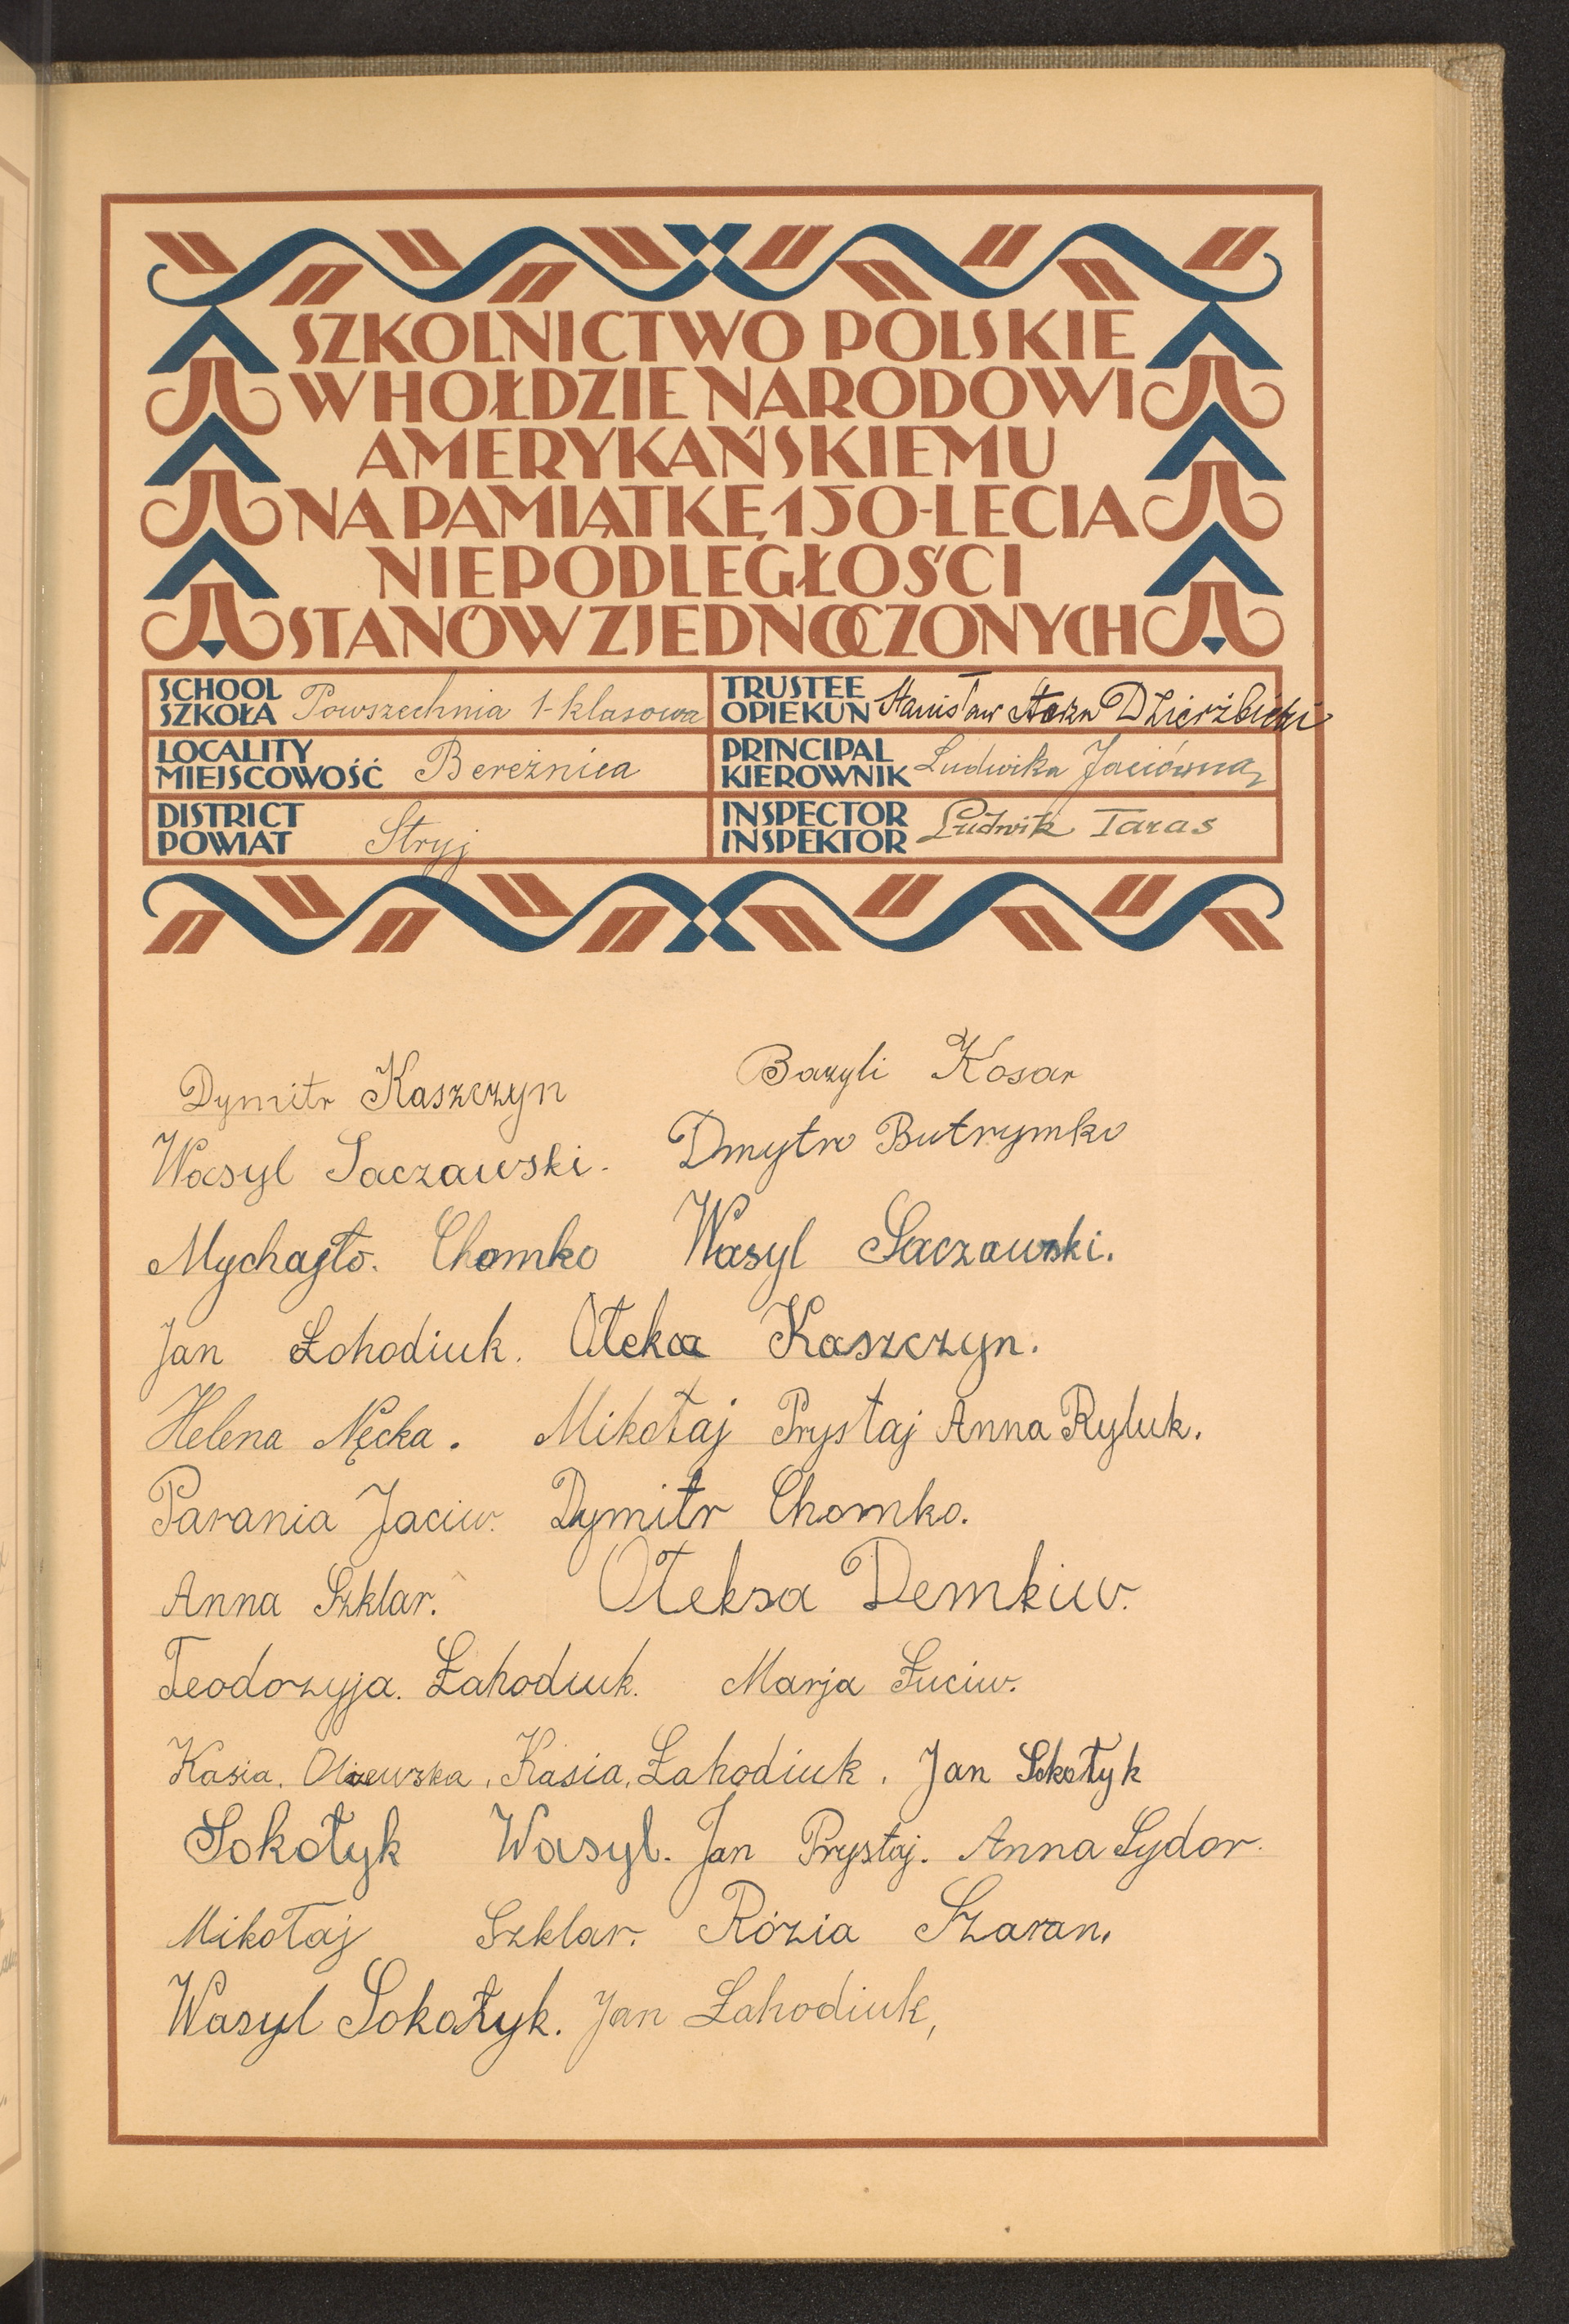 SZKOLNICTWO POLSKIE
W HOŁDZIE NARODOWI
AMERYKAŃSKIEMU
NA PAMIĄTKĘ 150-LECIA
NIEPODLEGŁOŚCI
STANÓW ZJEDNOCZONYCH
SCHOOL
SZKOŁA Powszechnia 1-klasowa
TRUSTEE
OPIEKUN Stanisław Dzierżbicki
LOCALITY
MIEJSCOWOŚĆ Bereżnica
PRINCIPAL
KIEROWNIK Ludwika Jaciówna
DISTRICT
POWIAT Stryj
INSPECTOR
INSPEKTOR Ludwik Taras
Dymitr Kaszczyn Bazyli Kosar
Wasyl Saczawski. Dmytro Butrymko
Mychajło. Chomko Wasyl Saczawski.
Jan Łohodiuk. Kaszczyn.
Helena Nęcka. Mikołaj Prystaj Anna Ryluk.
Parania Jaciw. Dymitr Chomko.
Anna Szklar. Ołeksa Demkiw.
Teodozyja. Łahodiuk. Marja Łuciw.
Kasia. Kasia, Łahodiuk. Jan Sokołyk
Sokołyk Wasyl. Jan Prystaj. Anna Sydor.
Mikołaj Szklar. Rózia Szaran.
Wasyl Sokołyk. Jan Łahodiuk,